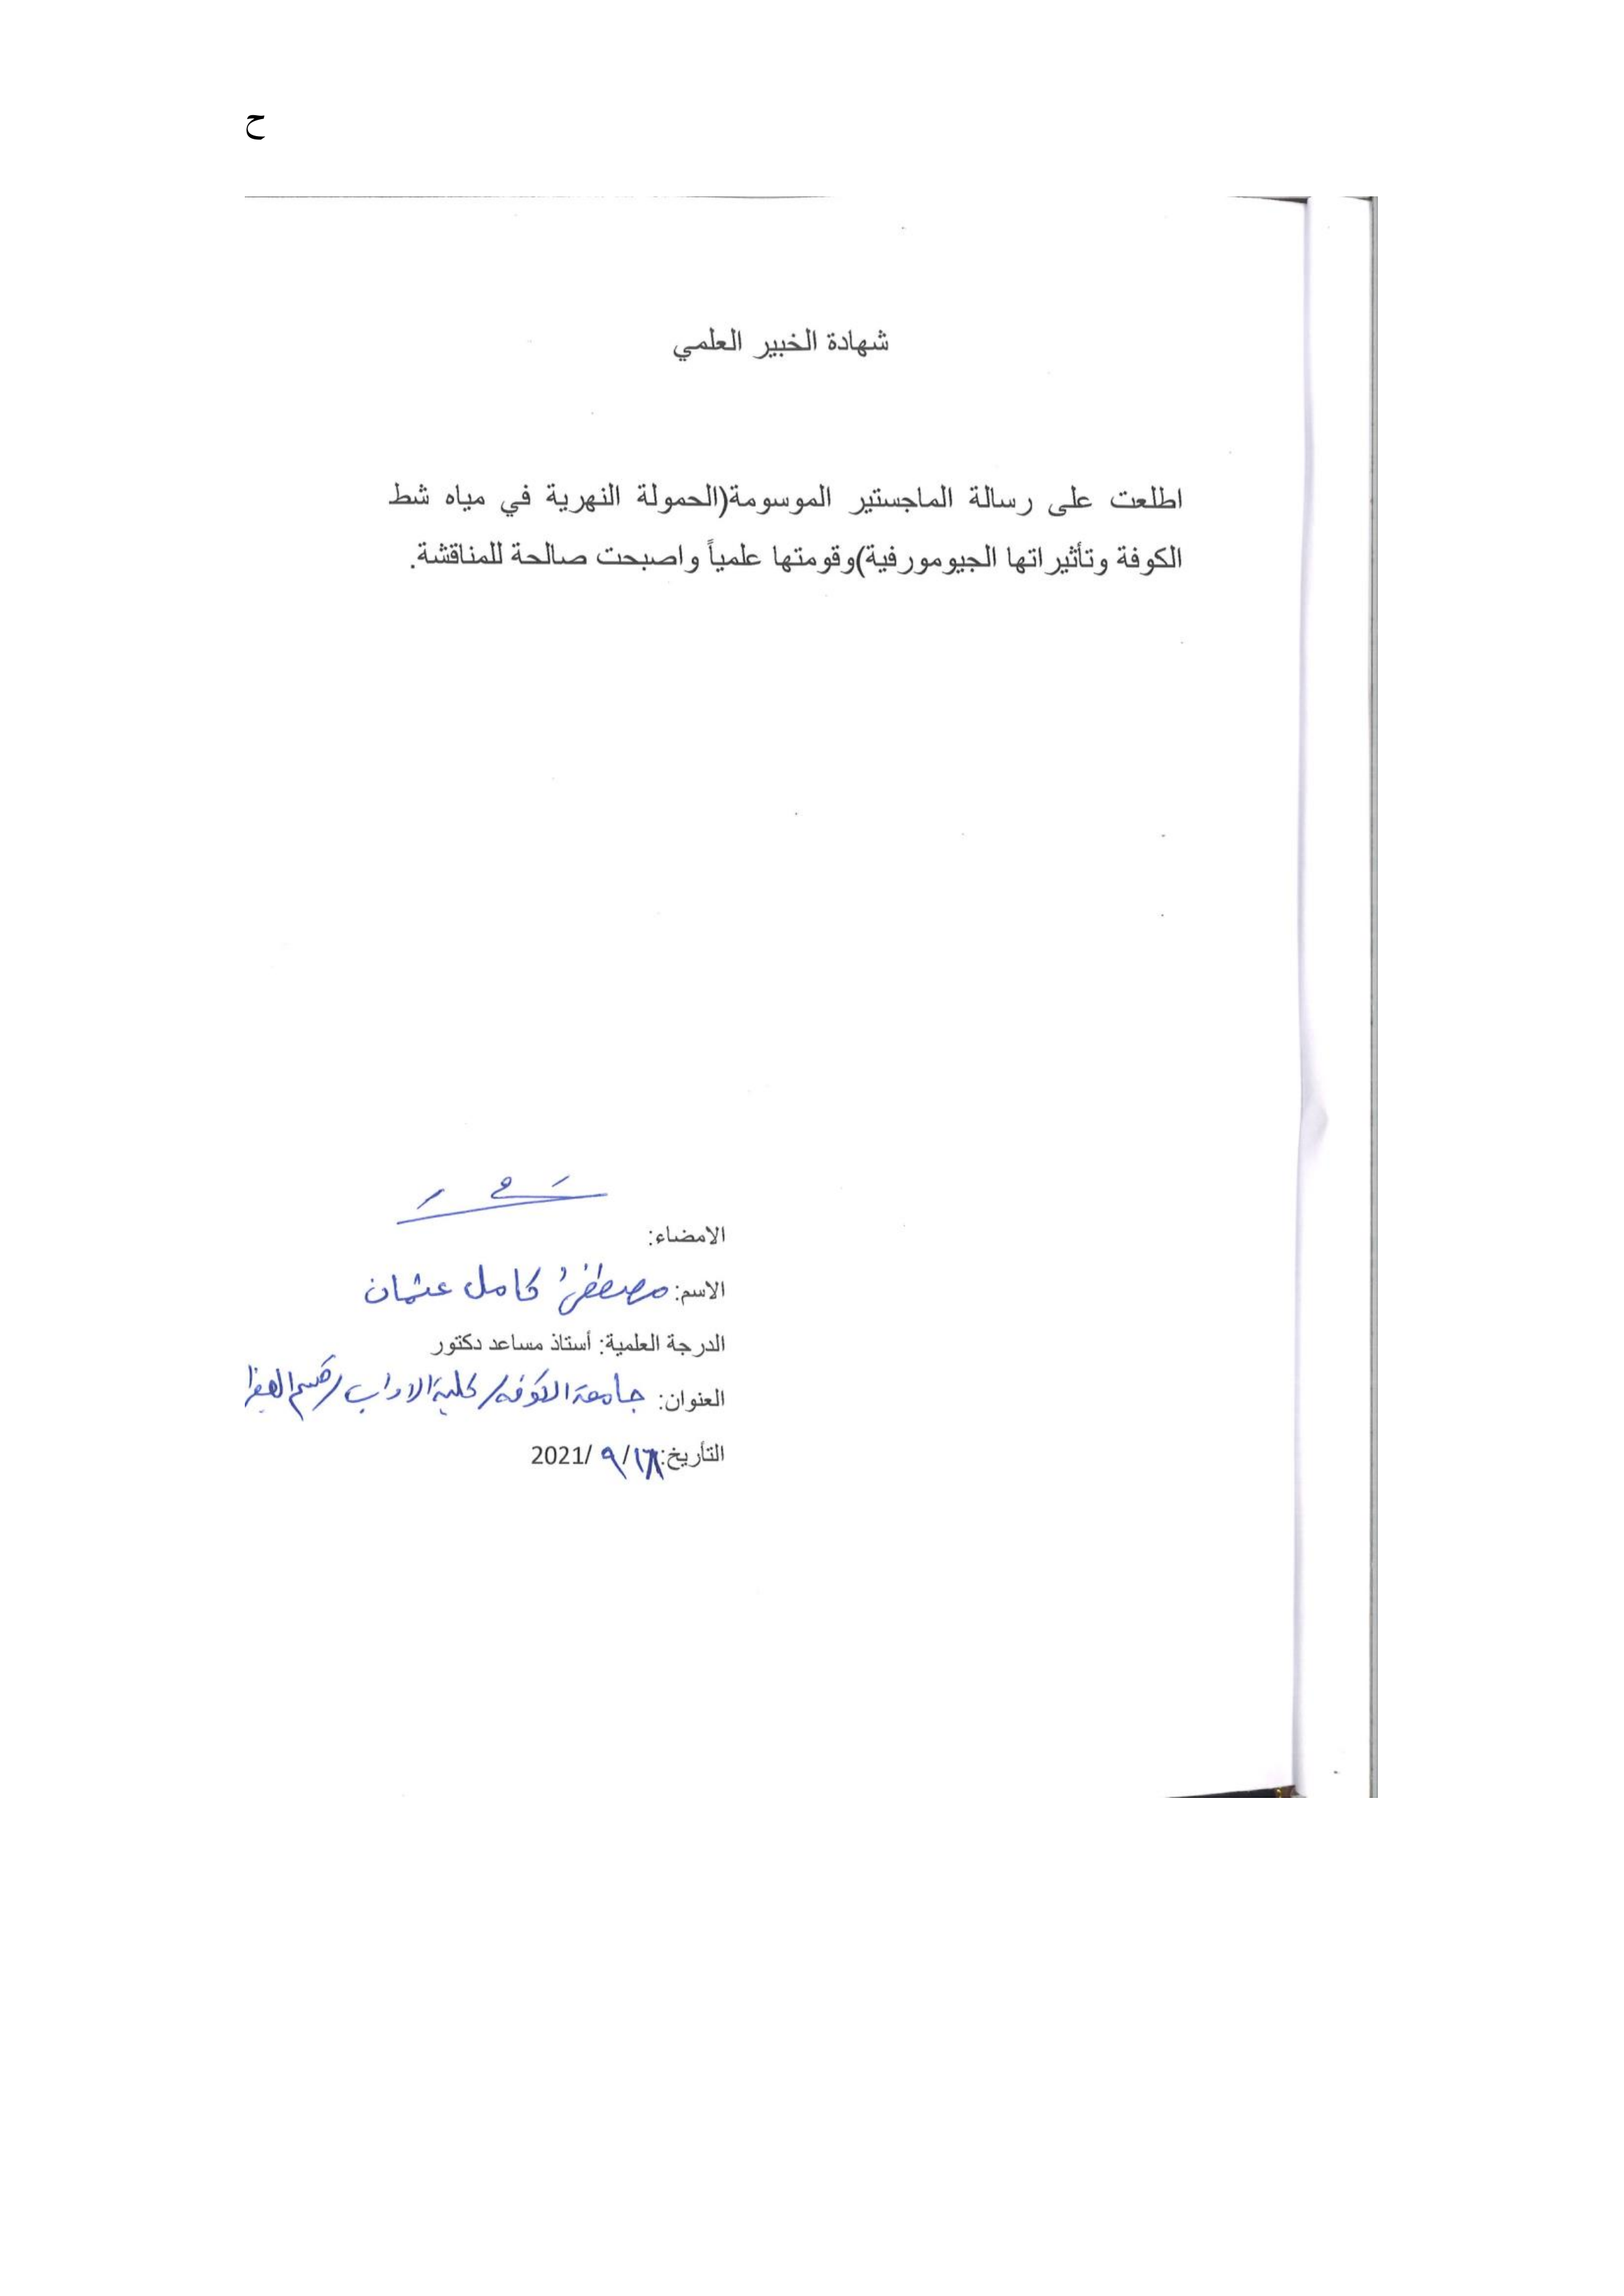 ح
شهادة الخبير العلمي
اطلعت على رسالة الماجستير الموسومة(الحمولة النهرية في مياه شط
الكوفة وتأثيراتها الجيومورفية)وقومتها علمياً واصبحت صالحة للمناقشة.
الامضاء:
الاسم: مصطفى كامل عثمان
الدرجة العلمية: أستاذ مساعد دكتور
العنوان: جامعة الكوفة/ كلية الاداب/ قسم
التأريخ: /٩ /2021